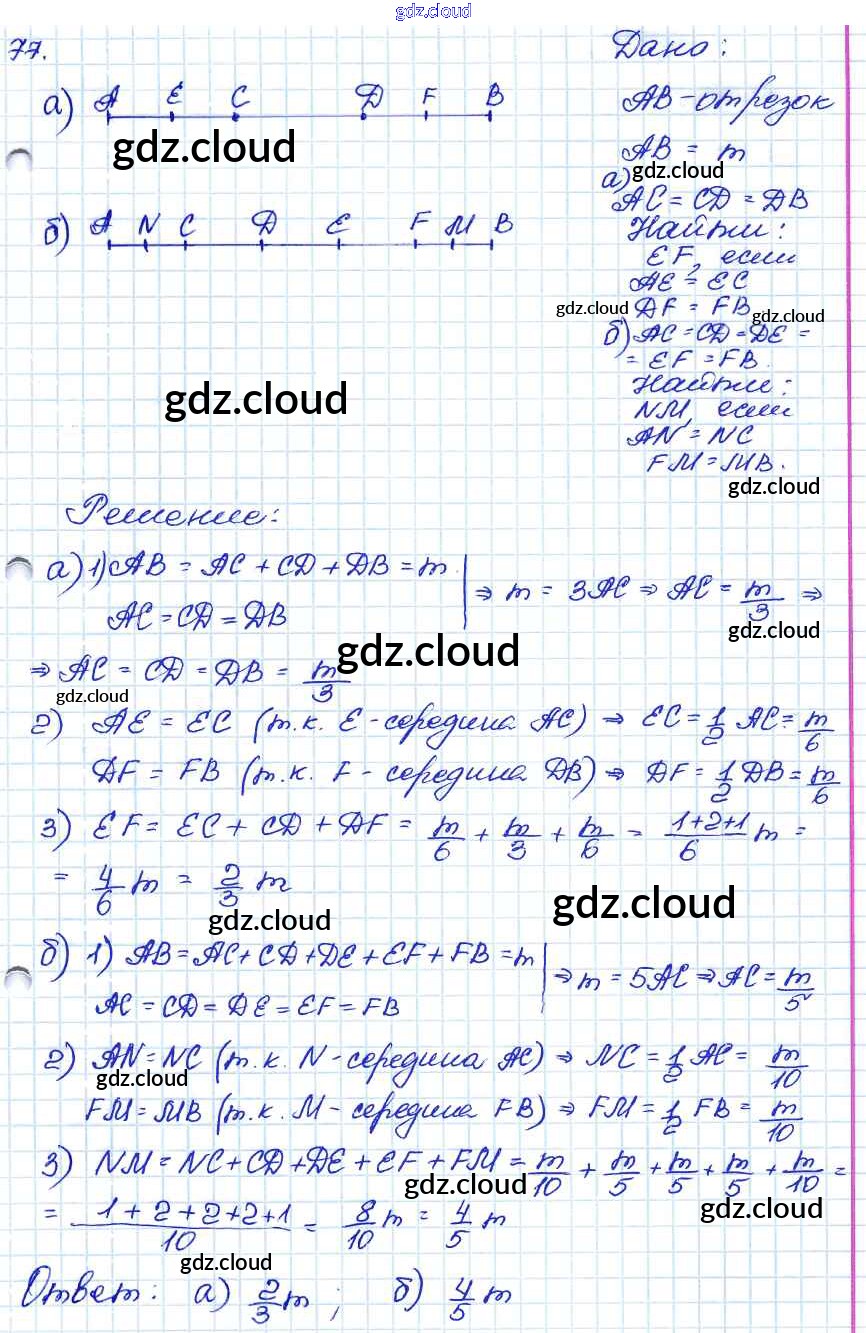 gdz.cloud
77.
Дано:
а) A E C D F B
AB - отрезок
gdz.cloud
AB = m
а) gdz.cloud
AC = CD = DB
б) A N C D E F M B
Найти:
EF, если
AE = EC
gdz.cloud DF = FB gdz.cloud
б) AC = CD = DE =
= EF = FB.
gdz.cloud
Найти:
NM, если
AN = NC
FM = MB.
gdz.cloud
Решение:
а) 1) AB = AC + CD + DB = m
AC = CD = DB
⇒ m = 3AC ⇒ AC = m/3 ⇒
gdz.cloud
gdz.cloud
⇒ AC = CD = DB = m/3
gdz.cloud
2) AE = EC (т.к. E - середина AC) ⇒ EC = 1/2 AC = m/6
DF = FB (т.к. F - середина DB) ⇒ DF = 1/2 DB = m/6
3) EF = EC + CD + DF = m/6 + m/3 + m/6 = (1+2+1)/6 m =
= 4/6 m = 2/3 m
gdz.cloud
gdz.cloud
б) 1) AB = AC + CD + DE + EF + FB = m
AC = CD = DE = EF = FB
⇒ m = 5AC ⇒ AC = m/5
2) AN = NC (т.к. N - середина AC) ⇒ NC = 1/2 AC = m/10
gdz.cloud
FM = MB (т.к. M - середина FB) ⇒ FM = 1/2 FB = m/10
3) NM = NC + CD + DE + EF + FM = m/10 + m/5 + m/5 + m/5 + m/10 =
gdz.cloud
= (1+2+2+2+1)/10 = 8/10 m = 4/5 m
gdz.cloud
gdz.cloud
Ответ: а) 2/3 m ; б) 4/5 m